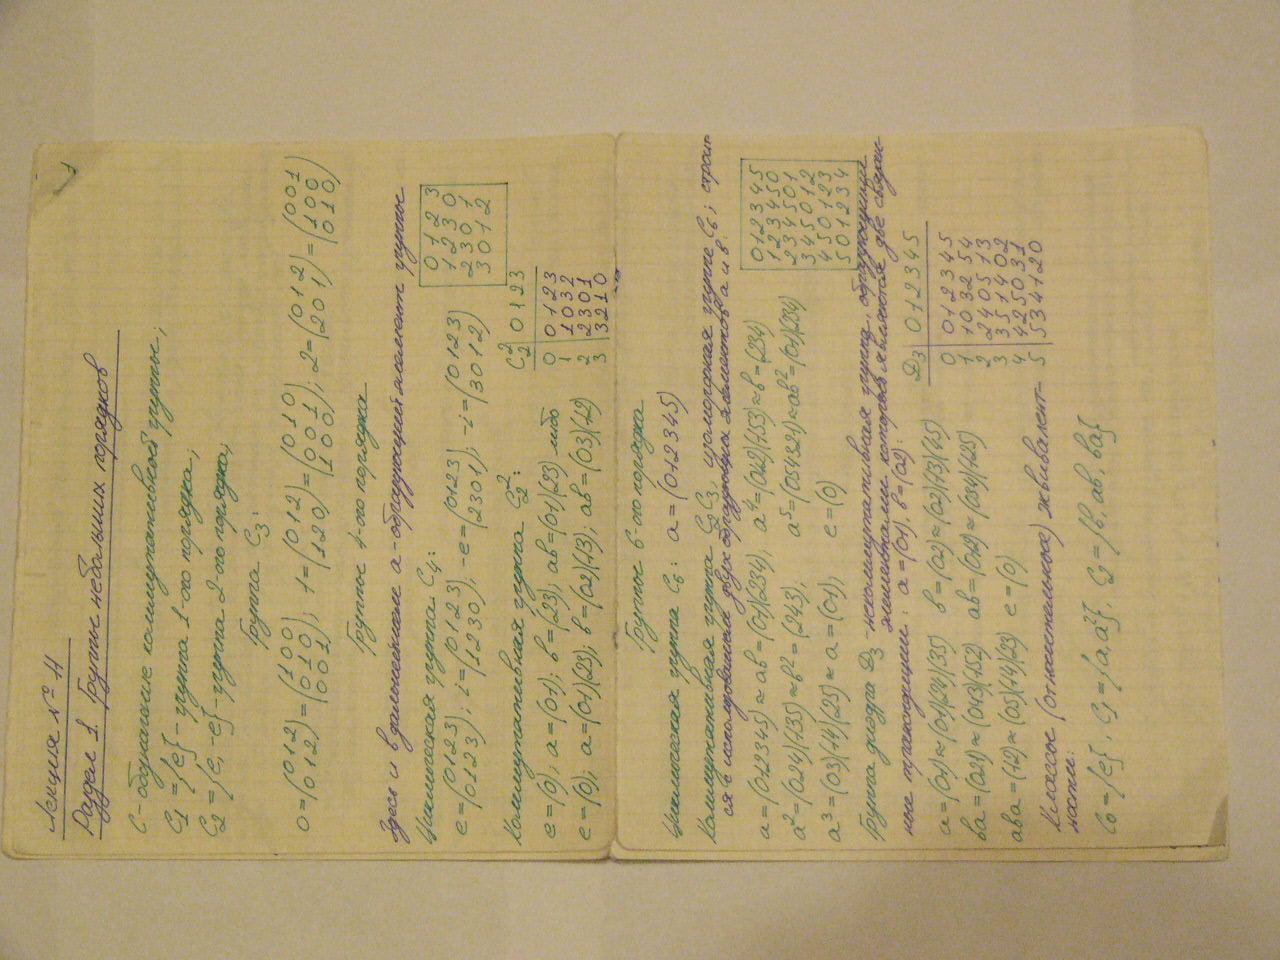 1
Лекция № 11
Раздел 1. Группы небольших порядков
C - обозначение коммутативной группы;
C₁ = {e} - группа 1-ого порядка;
C₂ = {e, -e} - группа 2-ого порядка;
Группа C₃:
0 = (0 1 2 / 0 1 2) = (1 0 0 / 0 1 0 / 0 0 1); 1 = (0 1 2 / 1 2 0) = (0 1 0 / 0 0 1 / 1 0 0); 2 = (0 1 2 / 2 0 1) = (0 0 1 / 1 0 0 / 0 1 0)
Группы 4-ого порядка
Здесь и в дальнейшем a - образующий элемент группы
Циклическая группа C₄:
e = (0 1 2 3 / 0 1 2 3); i = (0 1 2 3 / 1 2 3 0); -e = (0 1 2 3 / 2 3 0 1); -i = (0 1 2 3 / 3 0 1 2)
0 1 2 3
1 2 3 0
2 3 0 1
3 0 1 2
Коммутативная группа C₂²:
e = (0); a = (01); b = (23); ab = (01)(23) либо
e = (0); a = (01)(23); b = (02)(13); ab = (03)(12)
C₂² 0 1 2 3
0 0 1 2 3
1 1 0 3 2
2 2 3 0 1
3 3 2 1 0
Группы 6-ого порядка
Циклическая группа C₆: a = (012345)
Коммутативная группа C₂C₃, изоморфная группе C₆; строит-
ся с использованием двух образующих элементов a и b:
a = (012345) ≈ ab = (01)(234); a⁴ = (042)(153) ≈ b = (234)
a² = (024)(135) ≈ b² = (243); a⁵ = (054321) ≈ ab² = (01)(234)
a³ = (03)(14)(25) ≈ a = (01); e = (0)
0 1 2 3 4 5
1 2 3 4 5 0
2 3 4 5 0 1
3 4 5 0 1 2
4 5 0 1 2 3
5 0 1 2 3 4
Группа диэдра D₃ - некоммутативная группа, образующими
элементами которой являются две смеж-
ные транспозиции: a = (01); b = (02):
a = (01) ≈ (01)(24)(35) b = (02) ≈ (02)(13)(45)
ba = (021) ≈ (043)(152) ab = (012) ≈ (034)(125)
aba = (12) ≈ (05)(14)(23) e = (0)
D₃ 0 1 2 3 4 5
0 0 1 2 3 4 5
1 1 0 3 2 5 4
2 2 4 0 5 1 3
3 3 5 1 4 0 2
4 4 2 5 0 3 1
5 5 3 4 1 2 0
Классы (относительное) эквивалент-
ности:
C₀ = {e}, C₁ = {a, a²}, C₂ = {b, ab, ba}